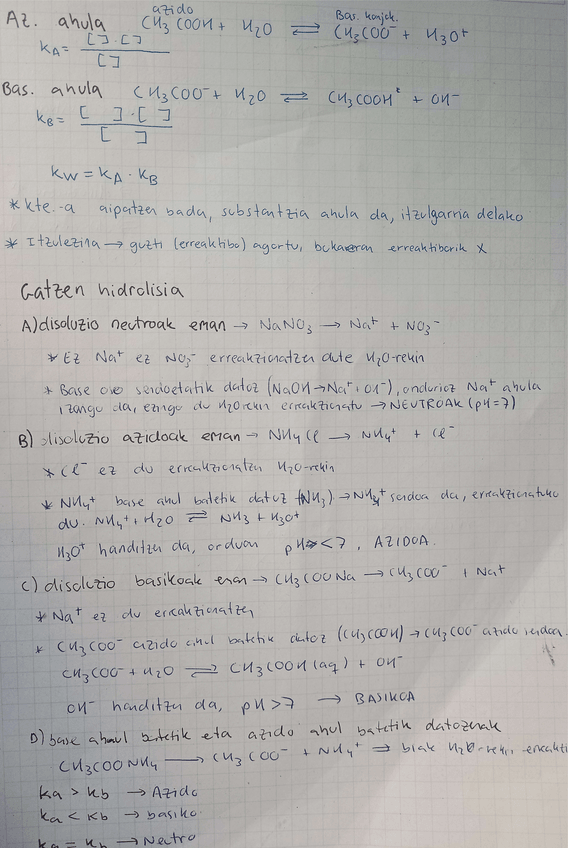 azido
Bas. konjok.
Az. ahula CH3COOH + H2O ⇌ CH3COO⁻ + H3O⁺
KA = [ ]·[ ] / [ ]
Bas. ahula CH3COO⁻ + H2O ⇌ CH3COOH + OH⁻
KB = [ ]·[ ] / [ ]
KW = KA · KB
* Kte.-a aipatzen bada, substantzia ahula da, itzulgarria delako
* Itzulezina → guzti (erreaktibo) agortu, bukaeran erreaktiborik X
Gatzen hidrolisia
A) disoluzio neutroak eman → NaNO3 → Na⁺ + NO3⁻
* Ez Na⁺ ez NO3⁻ erreakzionatzen dute H2O-rekin
* Base oso sendoetatik datoz (NaOH → Na⁺ + OH⁻), ondorioz Na⁺ ahula
izango da, ezingo du H2O rekin erreakzionatu → NEUTROAK (pH=7)
B) disoluzio azidoak eman → NH4Cl → NH4⁺ + Cl⁻
* Cl⁻ ez du erreakzionatzen H2O-rekin
* NH4⁺ base ahul batetik datoz (NH3) → NH4⁺ sendoa da, erreakzionatuko
du. NH4⁺ + H2O ⇌ NH3 + H3O⁺
H3O⁺ handitzen da, orduan pH < 7, AZIDOA.
C) disoluzio basikoak eman → CH3COONa → CH3COO⁻ + Na⁺
* Na⁺ ez du erreakzionatzen
* CH3COO⁻ azido ahul batetik datoz (CH3COOH) → CH3COO⁻ azido sendoa
CH3COO⁻ + H2O ⇌ CH3COOH (aq) + OH⁻
OH⁻ handitzen da, pH > 7 → BASIKOA
D) base ahul batetik eta azido ahul batetik datozenak
CH3COONH4 → CH3COO⁻ + NH4⁺ ⇒ biak H2O-rekin
Ka > Kb → Azido
Ka < Kb → basiko
Ka = Kb → Neutro